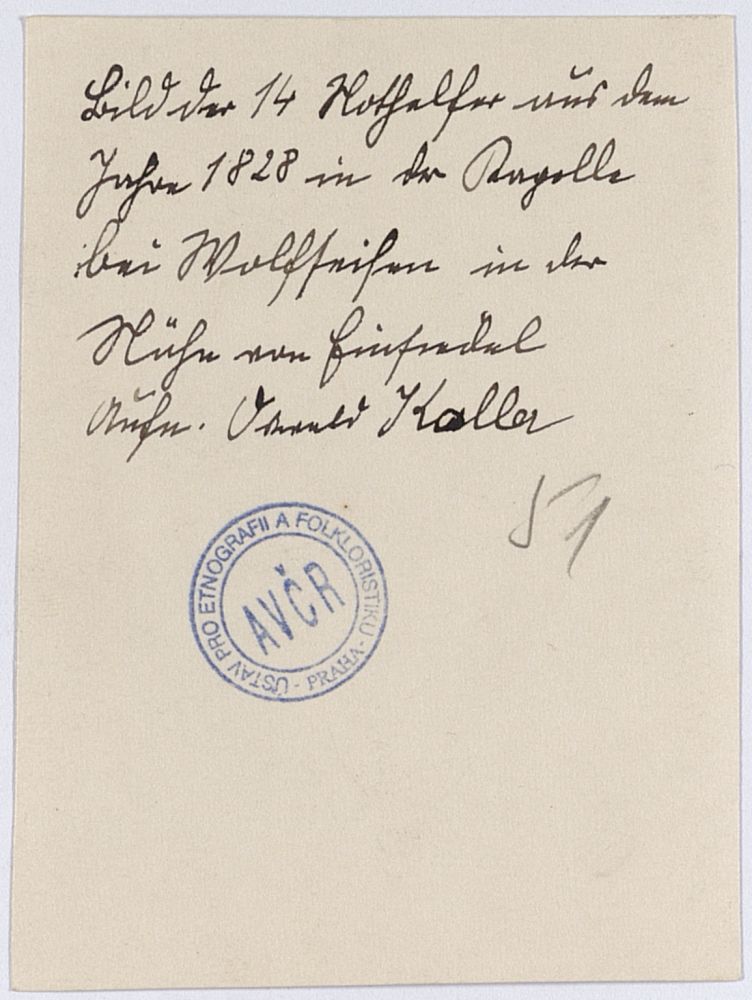 Bild der 14 Nothelfer aus dem
Jahre 1828 in der Kapelle
bei Wolfseisen in der
Nähe von Einsiedel
Aufn. Oswald Koller
51
ÚSTAV PRO ETNOGRAFII A FOLKLORISTIKU - PRAHA -
AVČR